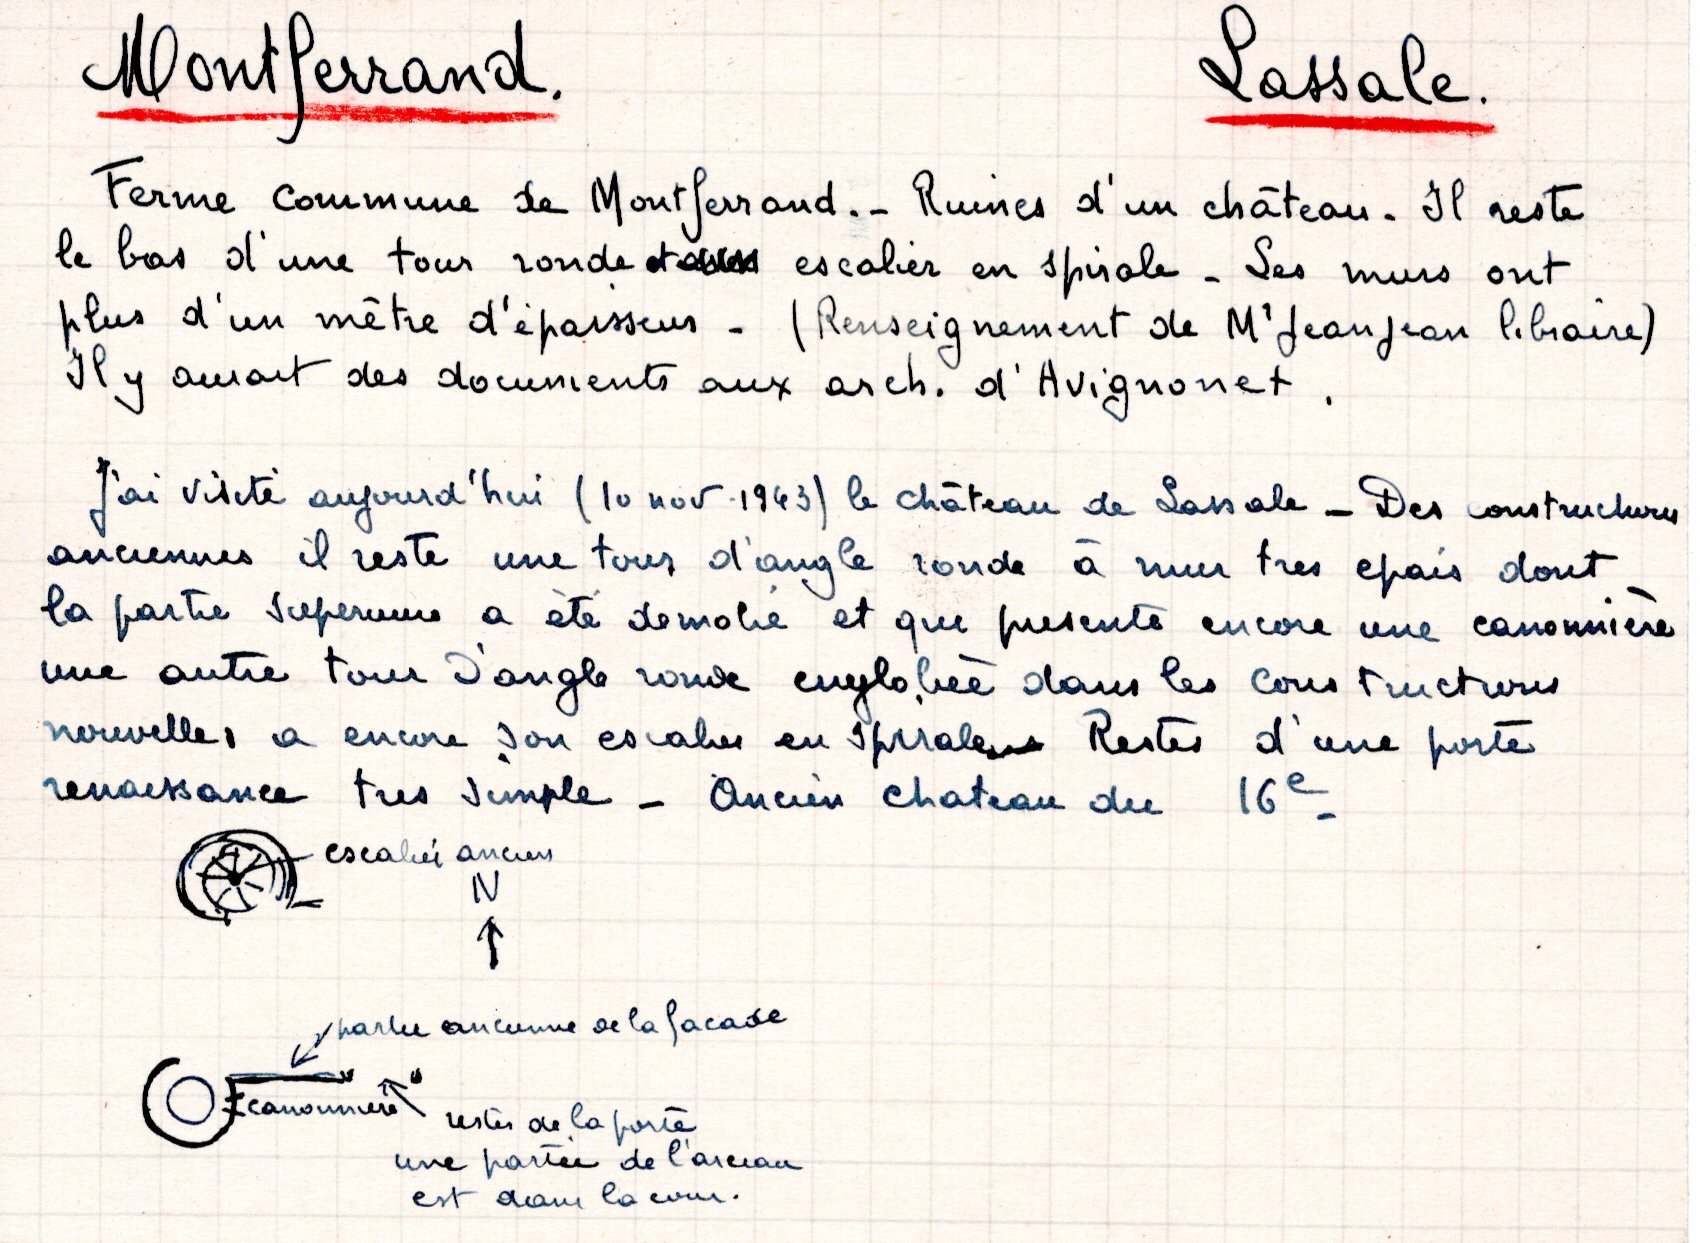 Montferrand. Lassale.
Ferme commune de Montferrand. - Ruines d'un château - Il reste
le bas d'une tour ronde escalier en spirale - Les murs ont
plus d'un mêtre d'épaisseur - (Renseignement de Mr Jeanjean libraire)
Il y aurait des documents aux arch. d'Avignonet.
J'ai visité aujourd'hui (10 nov. 1943) le château de Lassale - Des constructions
anciennes il reste une tour d'angle ronde à mur tres epais dont
la partie superieure a été demolie et qui presente encore une canonnière
une autre tour d'angle ronde englobée dans les constructions
nouvelles a encore son escalier en spirale Restes d'une porte
renaissance tres simple - Ancien chateau du 16e -
escalier ancien
N
partie ancienne de la facade
canonniere
restes de la porte
une partie de l'arceau
est dans la cour.